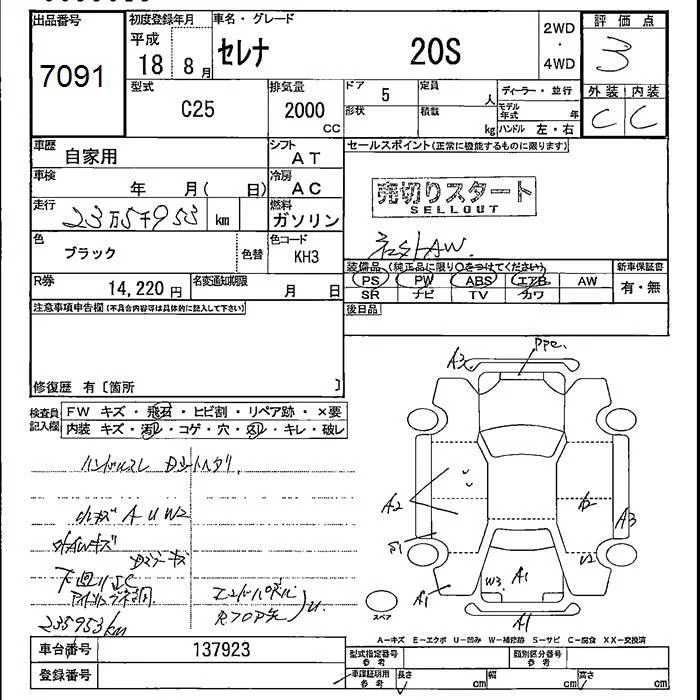 出品番号
7091
初度登録年月
平成
18 8月
車名・グレード
セレナ 20S
2WD
・
4WD
評価点
3
外装 内装
C C
型式
C25
排気量
2000
CC
ドア
5
定員
人
形状
積載
kg
ディーラー・並行
モデル年式 年
ハンドル 左・右
車歴
自家用
シフト
AT
車検
年 月(日)
冷房
AC
走行
23万5千953 km
燃料
ガソリン
色
ブラック
色替
色コード
KH3
R券
14,220円
名変通知期限
月 日
セールスポイント(正常に機能するものに限ります)
売切りスタート
SELLOUT
社外AW.
装備品(純正品に限り○をつけてください)
PS PW ABS エアB AW
SR ナビ TV カワ
新車保証書
有・無
後日品
注意事項申告欄(不具合内容等は具体的に記入して下さい)
修復歴 有〔箇所 〕
検査員記入欄
FW キズ・飛石・ヒビ割・リペア跡・×要
内装 キズ・汚レ・コゲ・穴・スリ・キレ・破レ
ハンドルスレ Dシートヘタリ
小キズ A U W2
外AWキズ
下回りSC
235953km
A3
A2
A1
W3 A1
U2
A3
A1
スペア
A-キズ E-エクボ U-凹み W-補修跡 S-サビ C-腐食 XX-交換済
車台番号
137923
登録番号
型式指定番号
参考
類別区分番号
参考
車庫証明用
参考
長さ cm
幅 cm
高さ cm